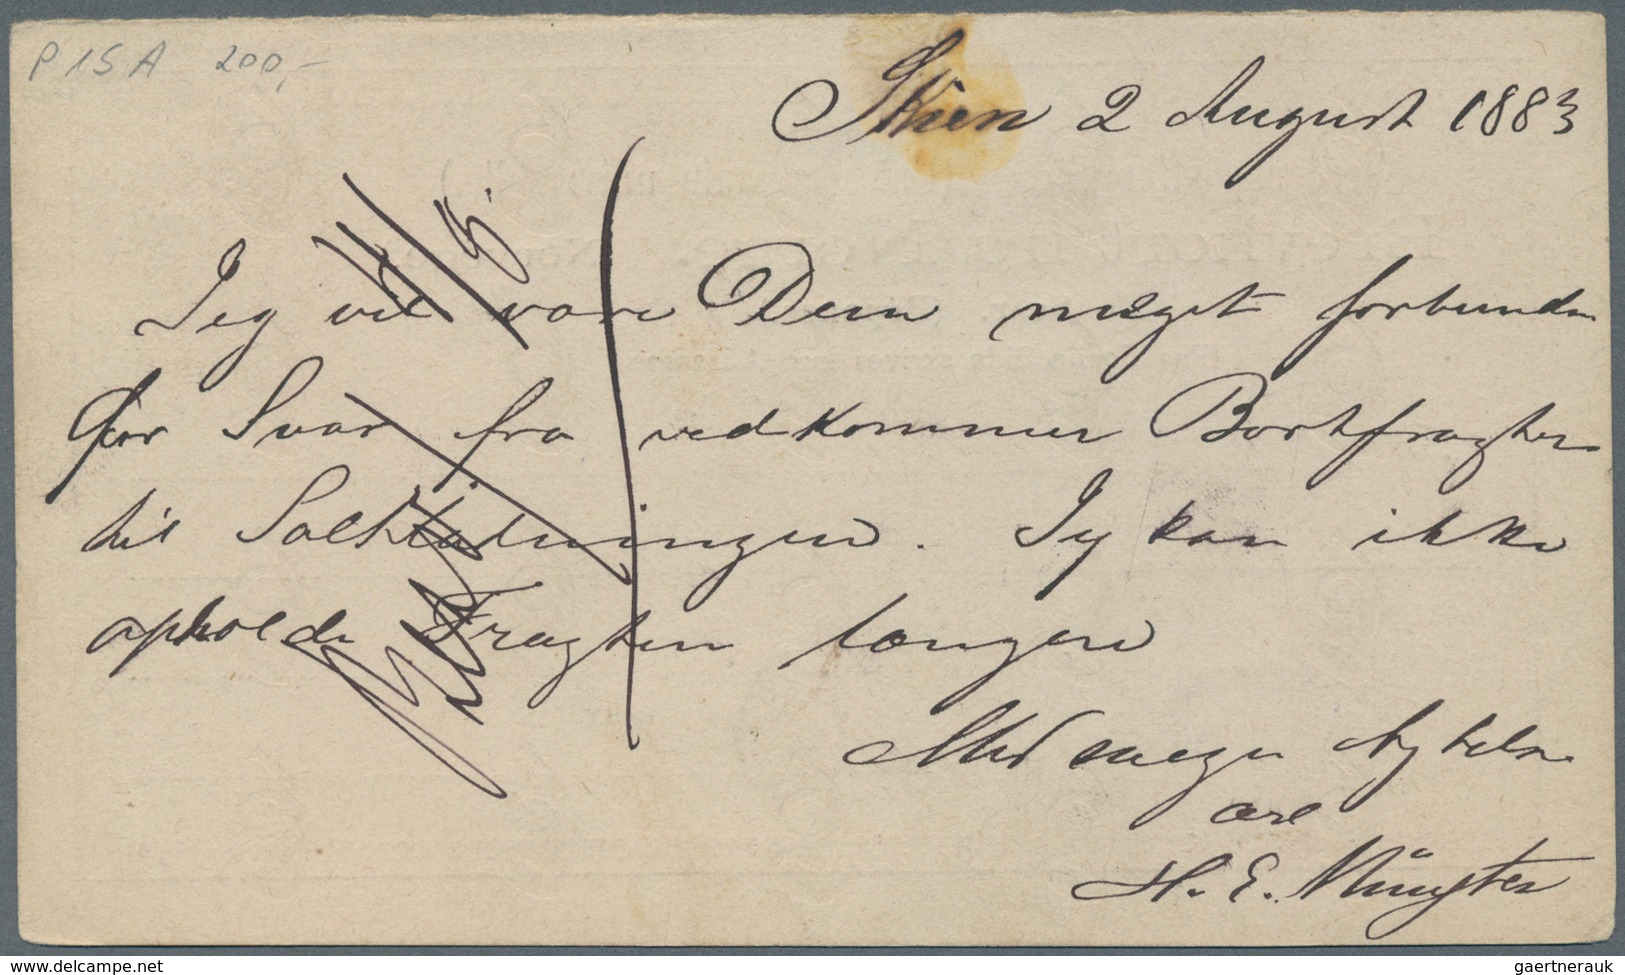 P 15 A 200,-
Skien 2 August 1883
11/8.
Jeg vil være Dem meget forbunden
for Svar fra vedkommer Bortfragter
til Saltladningen. Jeg kan ikke
opholde Fragten længere
Med megen Agtelse
ære
H. E. Münster
delcampe.net
gaertnerauk